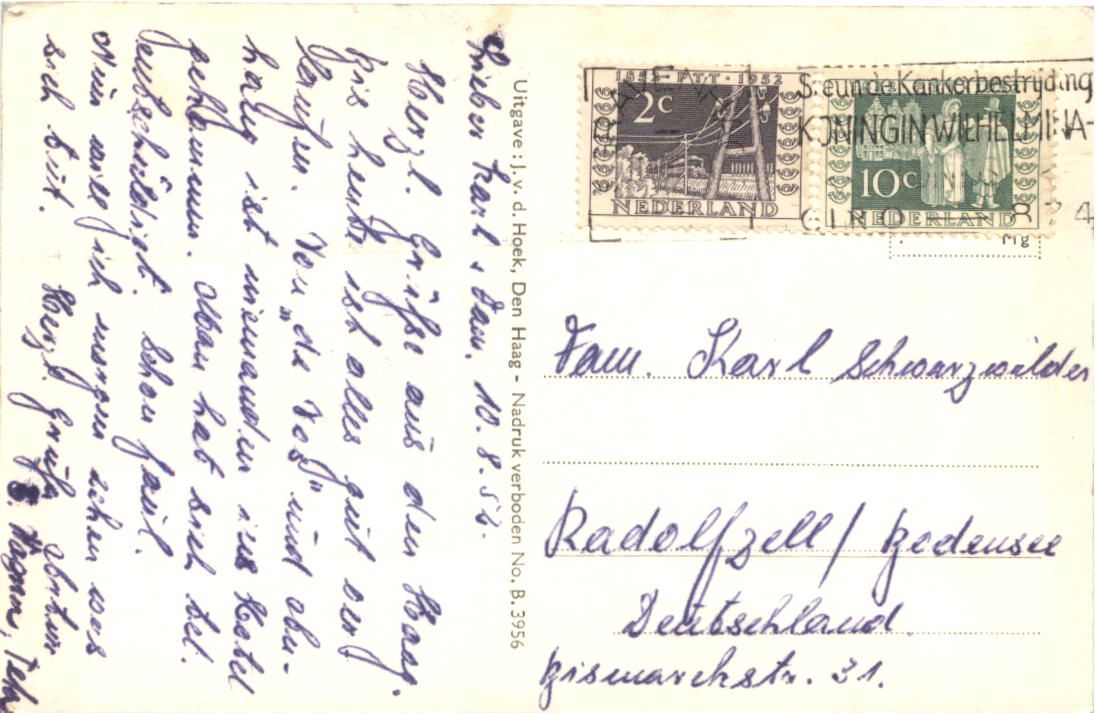 Lieber Karl + Dam. 10.8.52.
Herzl. Grüße aus den Haag.
Bis heute ist alles gut ver
laufen. Von „de Vos" und obu-
halig ist niemanden ins Hotel
gekommen. Man hat sich tel.
entschuldigt. Schon faul.
Nun will ich morgen sehen was
sich tut. Herzl. Grüße Anton
Uitgave: J. v. d. Hoek, Den Haag - Nadruk verboden No. B. 3956
1852 · PTT · 1952
2c
NEDERLAND
10c
NEDERLAND
Steun de Kankerbestrijding
KONINGIN WILHELMINA-
GIRO
Fam. Karl Schwarzwälder
Radolfzell / Bodensee
Deutschland.
Bismarckstr. 31.